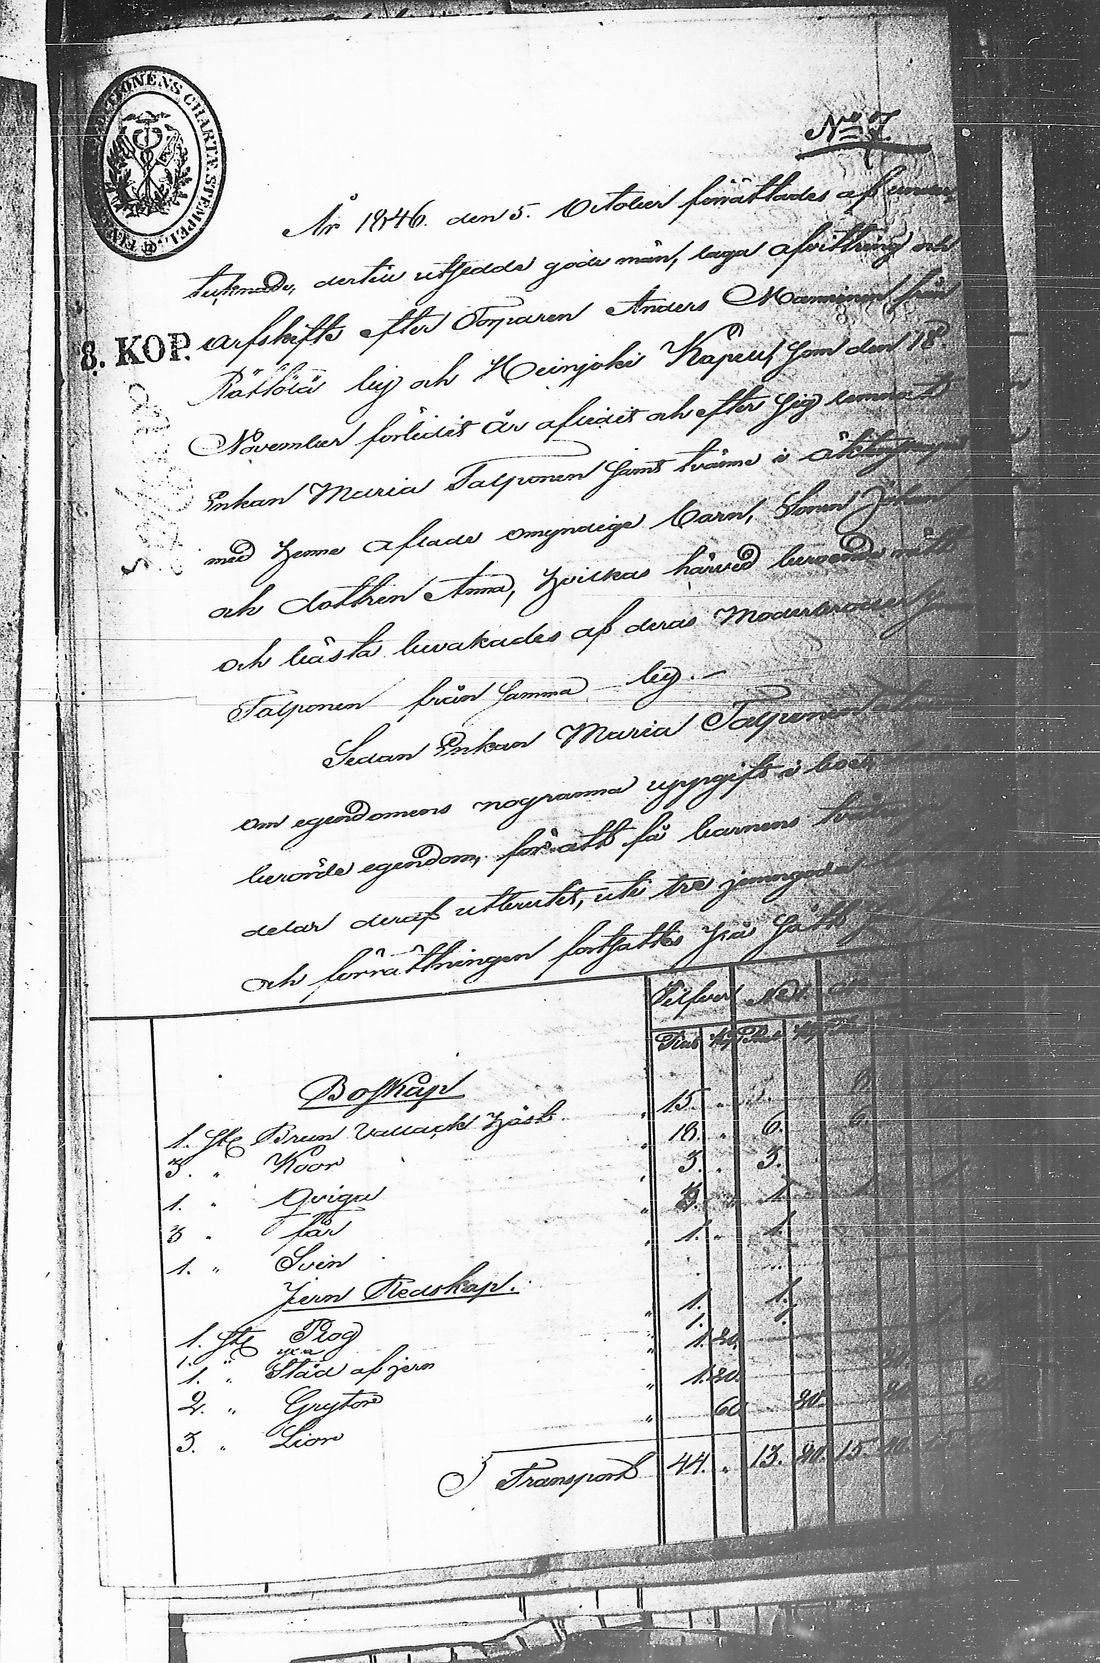 No 7.
CHARTÆ STEMPEL
År 1846. den 5. October förrättades af
tecknade, dertill utsedde gode män, laga afvittring och
8. KOP.
arfskifte efter Torparen Anders Manninen från
Rättölä by och Heinjoki Kapell, som den 18
November förledit år aflidit och efter sig lemnat
Enkan Maria Talponen samt tvänne i
med henne aflade omyndige barn, Sonen Johan
och dottren Anna, hvilkas härvid beroende rätt
och bästa bevakades af deras Moderbroder
Talponen från samma by.
Sedan Enkan Maria Talponen
om egendomens nogranna uppgift i boet
berörde egendom, för att få barnens
delar deraf utbrutit, uti tre jemngoda
och förrättningen fortsattes på sätt
Silfver
Rub. Kop. Rub. Kop.
Boskap
1. st. Brun Vallack häst 15. " 5.
3. " Koor 18. " 6. 6.
1. " Qviga 3. " 3.
3 " får 3. " 1. 1. 1.
1. " Svin 1. " 1.
Jern Redskap.
1. st. Plog 1. 1.
1. " yxa 1. 1.
1. " Städ af jern 1. 20.
2. " Grytor 1. 20.
3. " Lior 60. 20. 20. 20
Transport 44. " 13. 20. 15. 20. 15